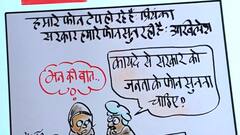 हमारे फोन टेप हो रहे हैं: प्रियंका
सरकार हमारे फोन सुन रही है: अखिलेश
मन की बात..
कायदे से सरकार को
जनता के फोन सुनना
चाहिए?